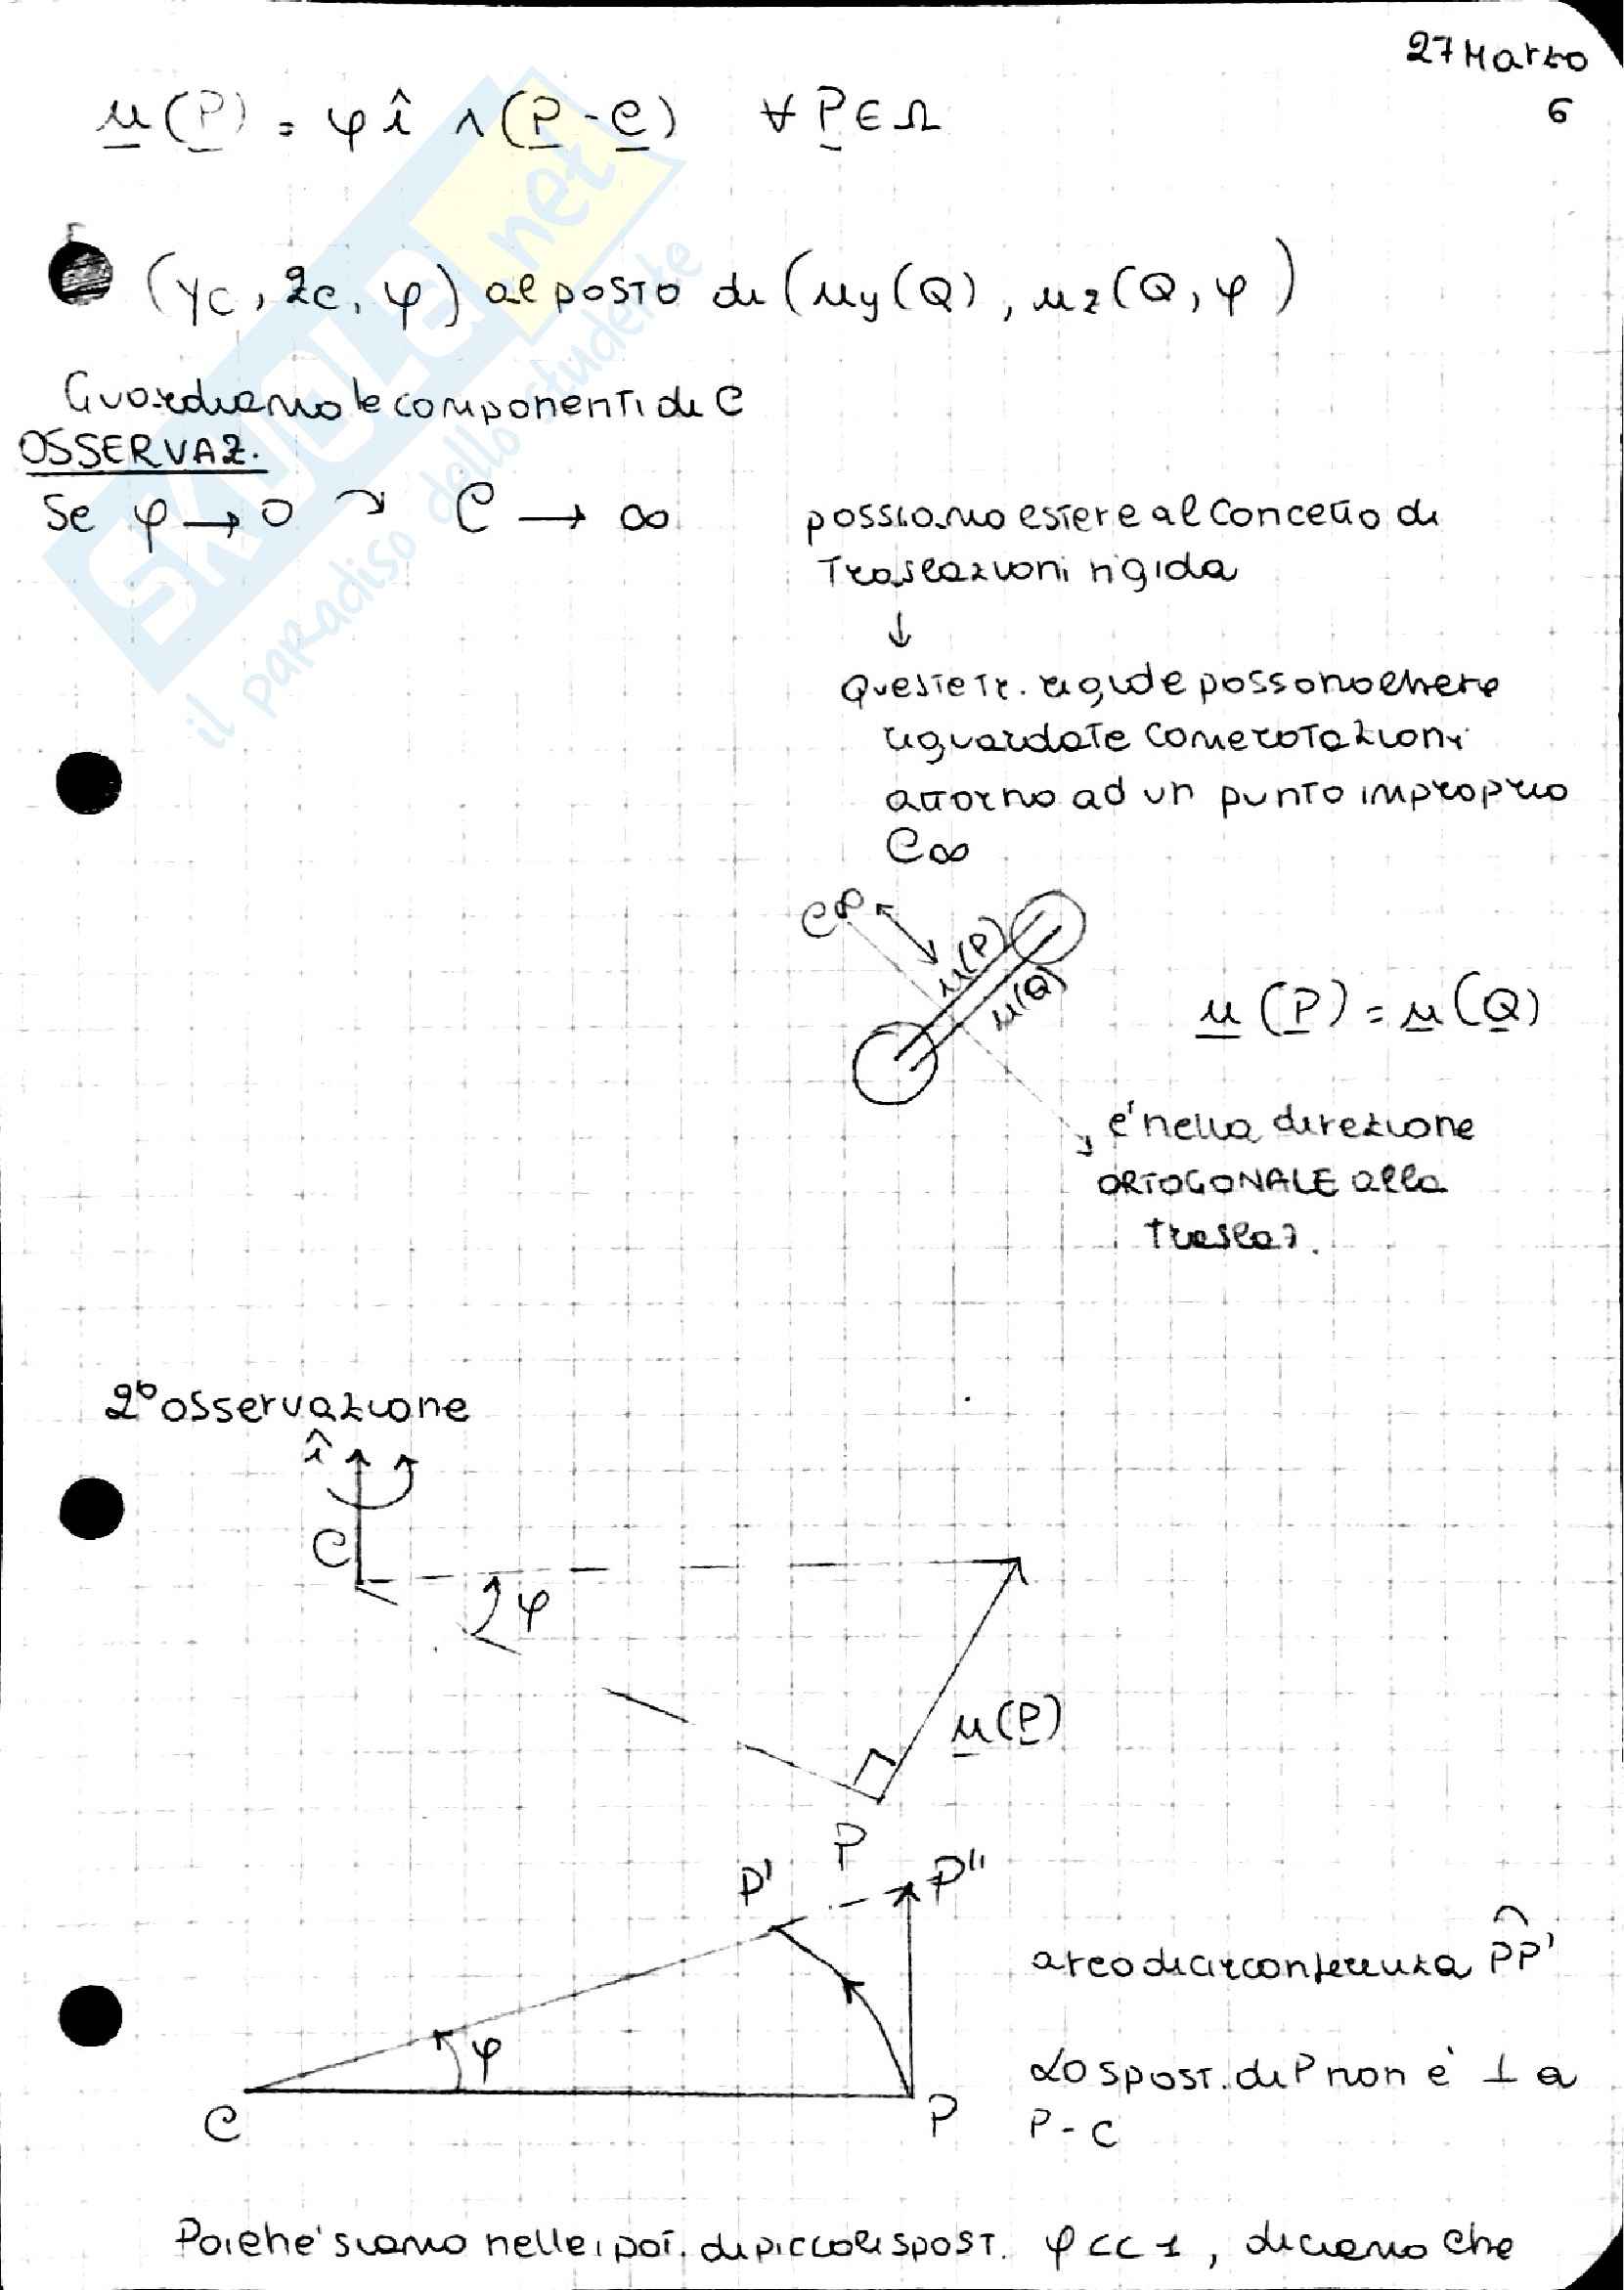 27 Marzo
6
u(P) = φ î ∧ (P - C) ∀ P ∈ Ω
(yc, zc, φ) al posto di (uy(Q), uz(Q, φ)
Guardiamo le componenti di C
OSSERVAZ.
Se φ → 0 ⤳ C → ∞
possiamo estere al concetto di
Traslazioni rigida
↓
Queste tr. rigide possono essere
riguardate come rotazioni
attorno ad un punto improprio
C∞
C∞
u(P)
u(Q)
u(P) = u(Q)
é nella direzione
ORTOGONALE alla
Traslaz.
2° osservazione
î
C
φ
u(P)
P
P'
P''
φ
C
P
arco di circonferenza PP'
Lo spost. di P non è ⊥ a
P - C
Poiché siamo nelle ipot. di piccoli spost. φ << 1, diciamo che
SKUOLA.net
il paradiso dello studente